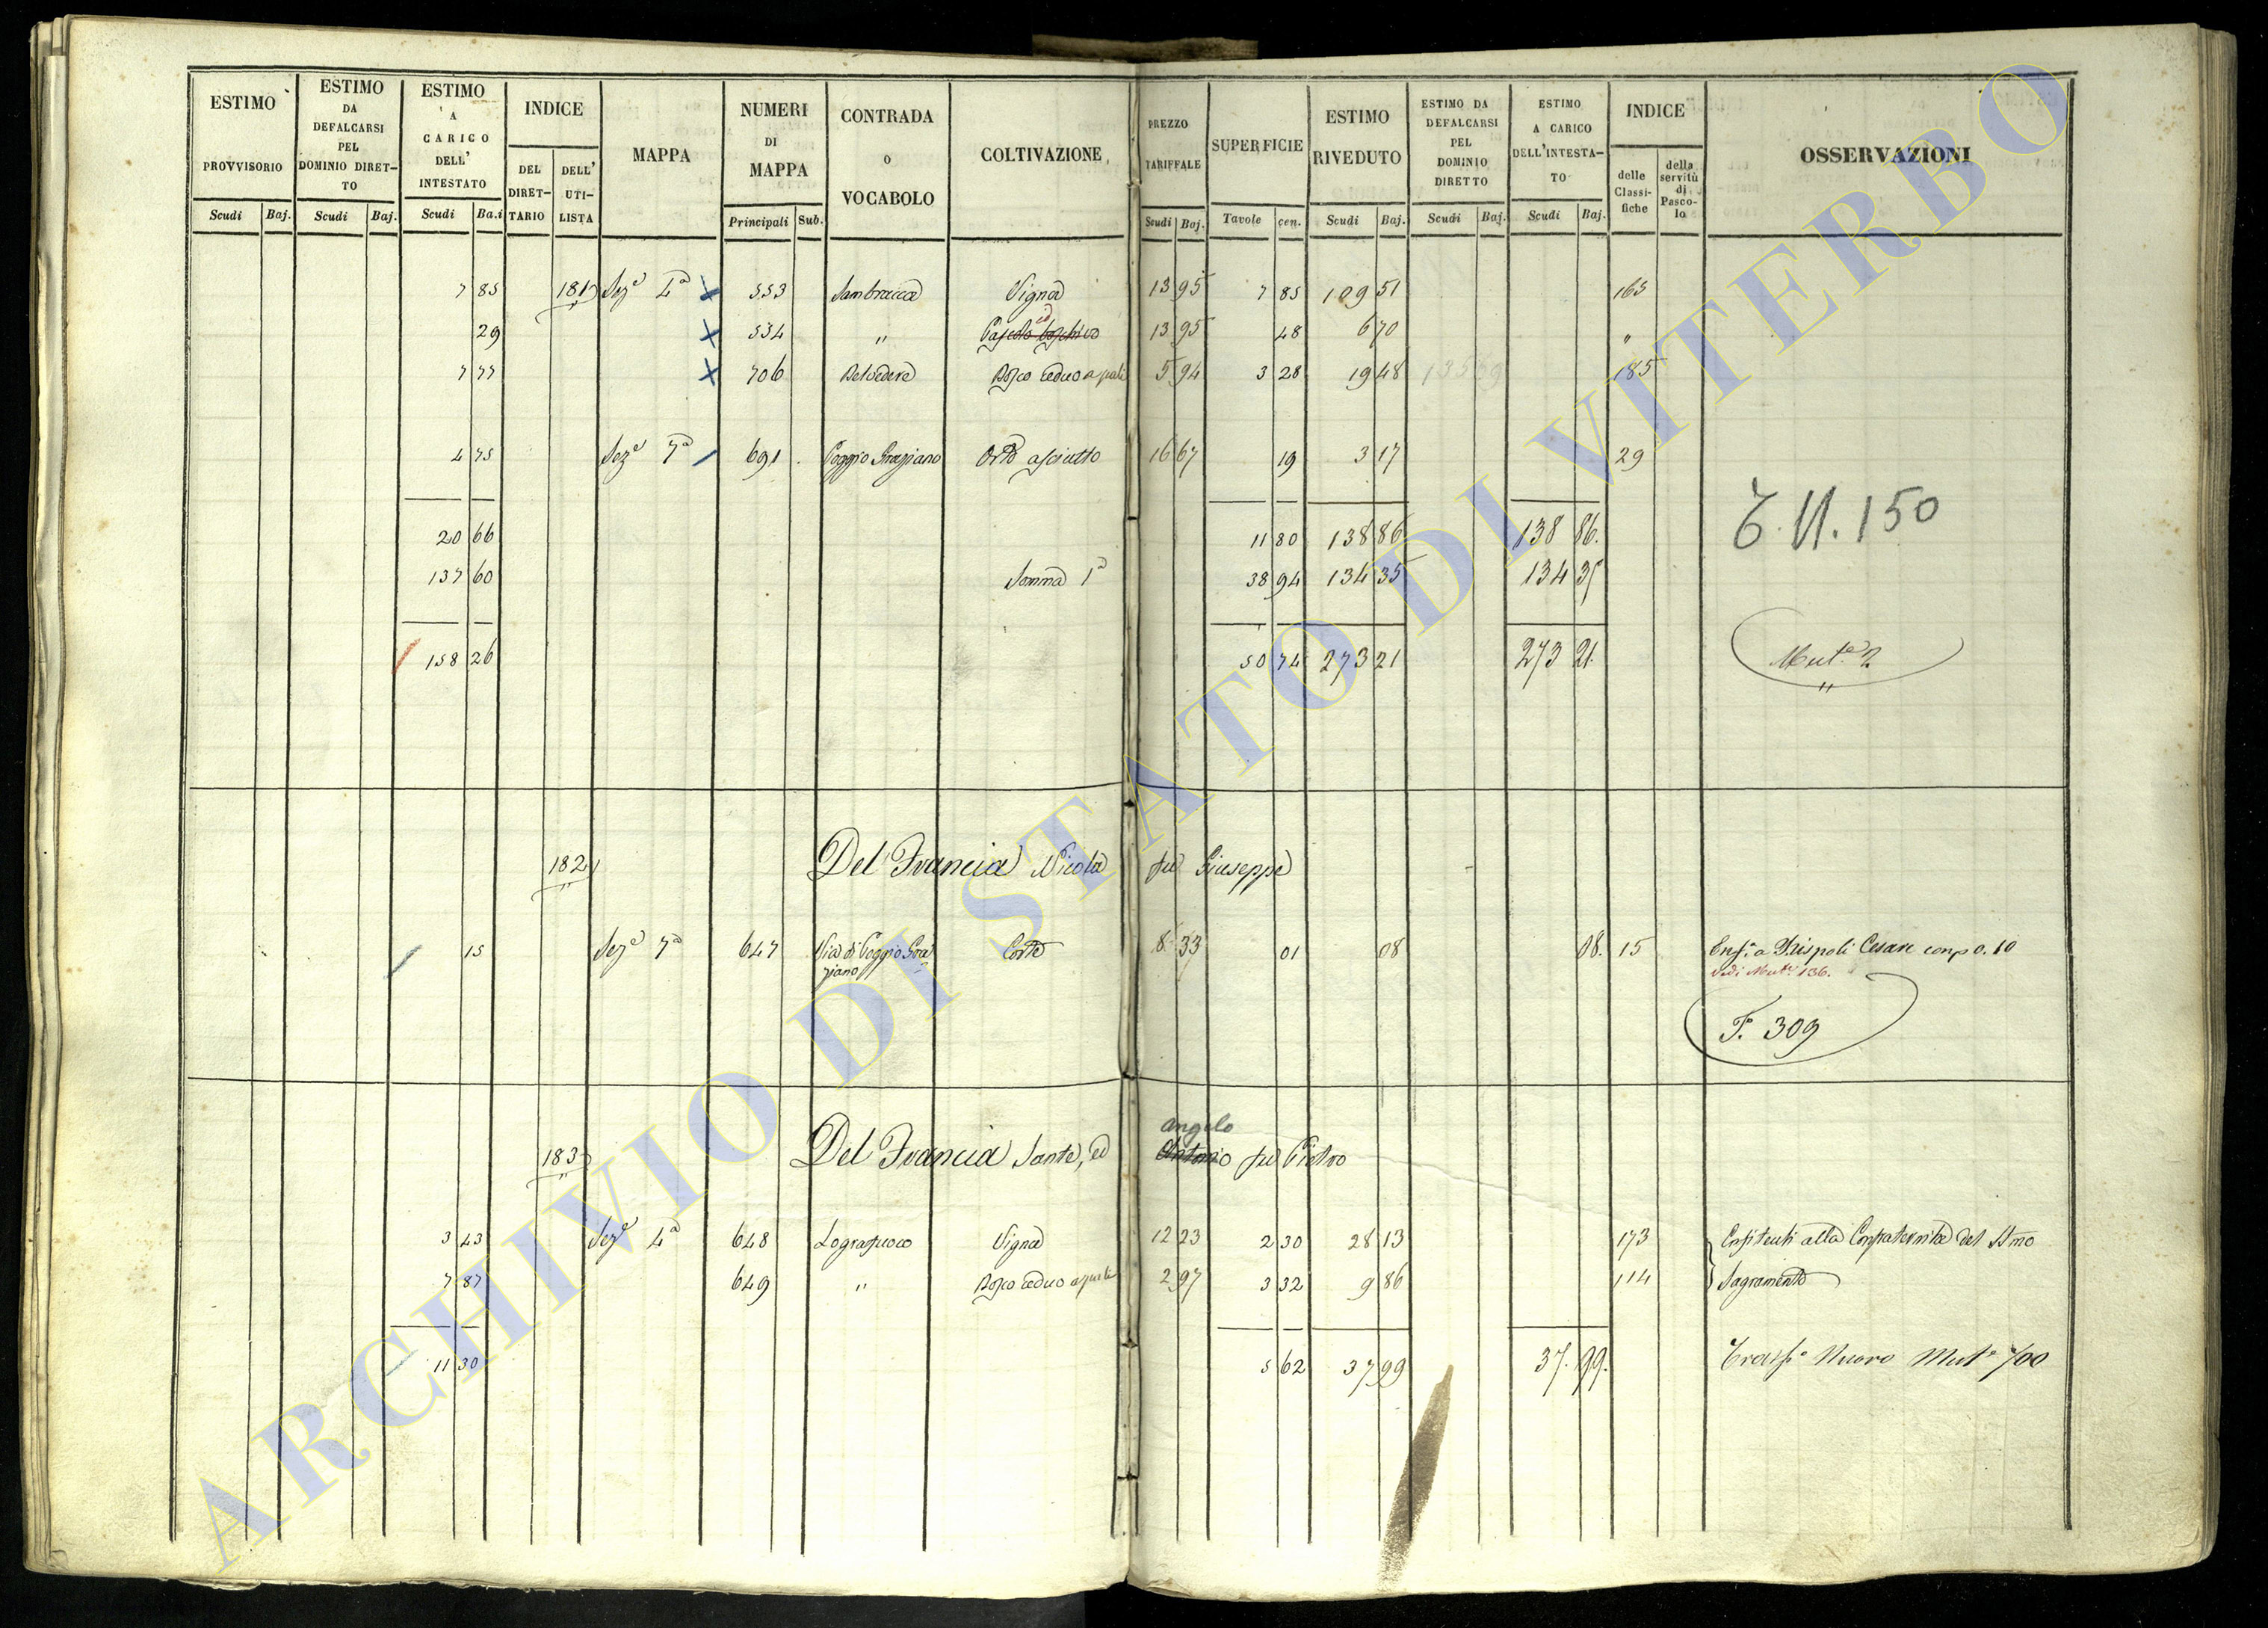 ESTIMO PROVVISORIO Scudi Baj.
ESTIMO DA DEFALCARSI PEL DOMINIO DIRETTO Scudi Baj.
ESTIMO A CARICO DELL' INTESTATO Scudi Ba.i
INDICE DEL DIRETTARIO DELL' UTILISTA
MAPPA
NUMERI DI MAPPA Principali Sub.
CONTRADA O VOCABOLO
COLTIVAZIONE
PREZZO TARIFFALE Scudi Baj.
SUPERFICIE Tavole cen.
ESTIMO RIVEDUTO Scudi Baj.
ESTIMO DA DEFALCARSI PEL DOMINIO DIRETTO Scudi Baj.
ESTIMO A CARICO DELL'INTESTATO Scudi Baj.
INDICE delle Classifiche della servitù di Pascolo
OSSERVAZIONI
7 85 181 Sez.e 4a 553 Sambracca Vigna 13 95 7 85 109 51 165
29 534 " Pascolo boschivo 13 95 48 6 70 "
7 77 706 Belvedere Bosco ceduo a pali 5 94 3 28 19 48 135 69 185
4 75 Sez.e 7a 691 Poggio Graziano Orto asciutto 16 67 19 3 17 29
20 66 11 80 138 86 138 86. T. N. 150
137 60 Somma 1a 38 94 134 35 134 35
158 26 50 74 273 21 273 21. Mut.e 2
182 Del Francia Nicola fu Giuseppe
15 Sez.e 7a 647 Via di Poggio Graziano Corte 8 33 01 08 08. 15 Enf.a a Prispoli Cesare con p 0.10
Vedi Mut.e 136.
F. 309
183 Del Francia Sante, ed Antonio angelo fu Pietro
3 43 Sez.e 4a 648 Lografuoco Vigna 12 23 2 30 28 13 173 Enfiteuti alla Confraternita del SSmo
7 87 649 " Bosco ceduo a pali 2 97 3 32 9 86 114 Sagramento
11 30 5 62 37 99 37. 99. Trasf.e Nuovo Mut.e 700
ARCHIVIO DI STATO DI VITERBO